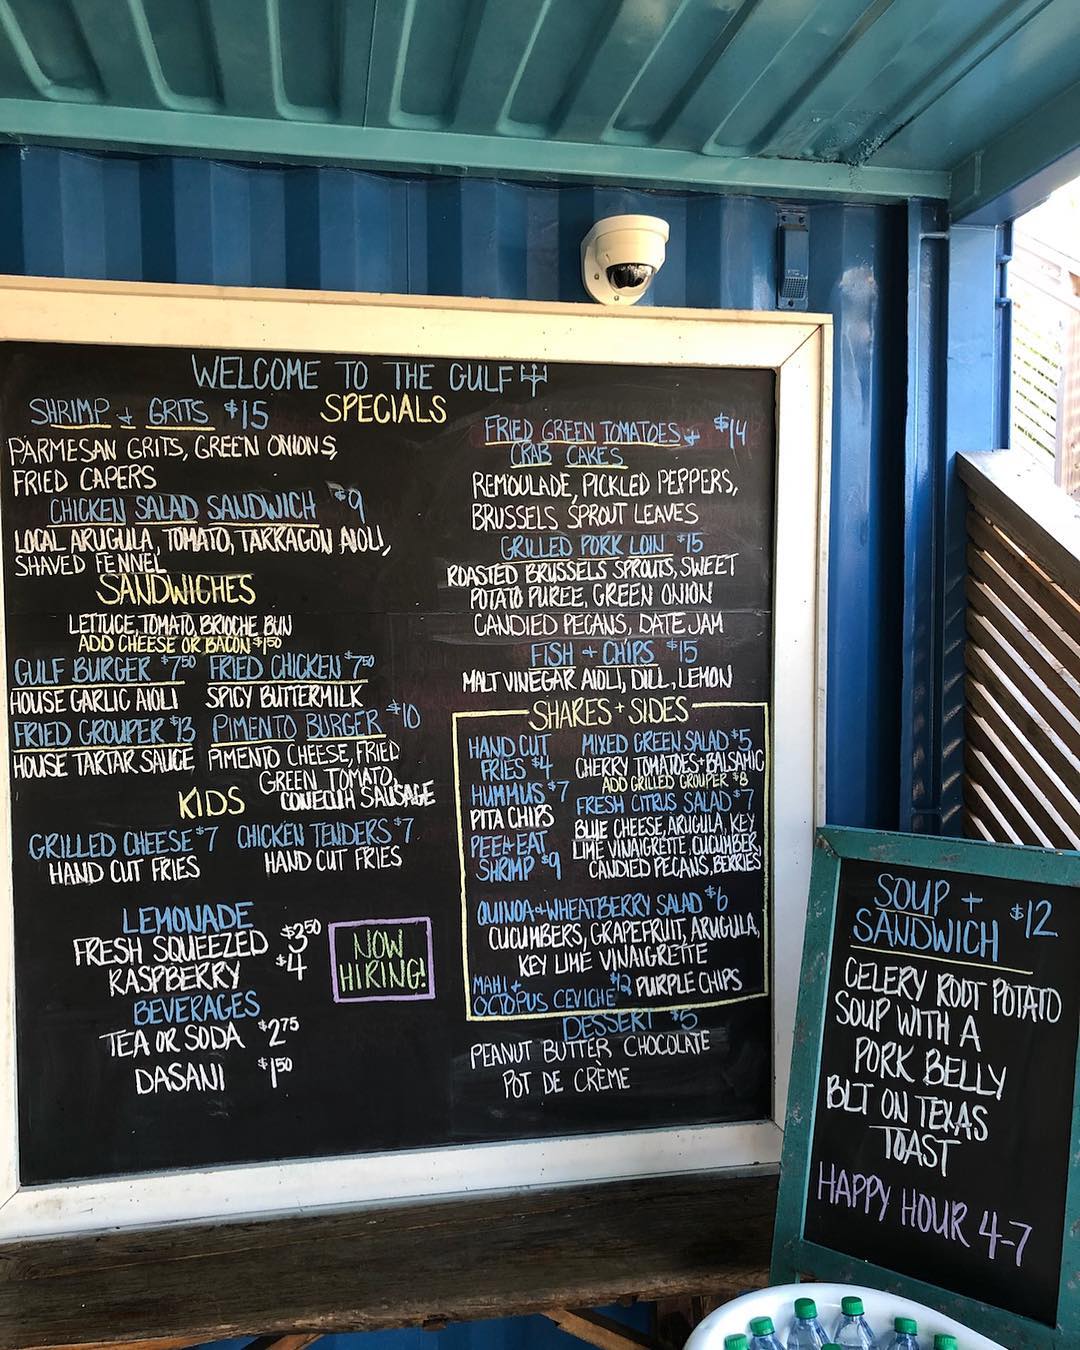 WELCOME TO THE GULF
SPECIALS
SHRIMP + GRITS $15
PARMESAN GRITS, GREEN ONIONS,
FRIED CAPERS
CHICKEN SALAD SANDWICH $9
LOCAL ARUGULA, TOMATO, TARRAGON AIOLI,
SHAVED FENNEL
SANDWICHES
LETTUCE, TOMATO, BRIOCHE BUN
ADD CHEESE OR BACON $1.50
GULF BURGER $7.50
HOUSE GARLIC AIOLI
FRIED CHICKEN $7.50
SPICY BUTTERMILK
FRIED GROUPER $13
HOUSE TARTAR SAUCE
PIMENTO BURGER $10
PIMENTO CHEESE, FRIED
GREEN TOMATO,
CONECUH SAUSAGE
KIDS
GRILLED CHEESE $7
HAND CUT FRIES
CHICKEN TENDERS $7
HAND CUT FRIES
LEMONADE
FRESH SQUEEZED $3.50
RASPBERRY $4
BEVERAGES
TEA OR SODA $2.75
DASANI $1.50
NOW
HIRING!
FRIED GREEN TOMATOES + $14
CRAB CAKES
REMOULADE, PICKLED PEPPERS,
BRUSSELS SPROUT LEAVES
GRILLED PORK LOIN $15
ROASTED BRUSSELS SPROUTS, SWEET
POTATO PUREE, GREEN ONION
CANDIED PECANS, DATE JAM
FISH + CHIPS $15
MALT VINEGAR AIOLI, DILL, LEMON
SHARES + SIDES
HAND CUT
FRIES $4
HUMMUS $7
PITA CHIPS
PEEL+EAT
SHRIMP $9
MIXED GREEN SALAD $5
CHERRY TOMATOES + BALSAMIC
ADD GRILLED GROUPER $8
FRESH CITRUS SALAD $7
BLUE CHEESE, ARUGULA, KEY
LIME VINAIGRETTE, CUCUMBER,
CANDIED PECANS, BERRIES
QUINOA + WHEATBERRY SALAD $6
CUCUMBERS, GRAPEFRUIT, ARUGULA,
KEY LIME VINAIGRETTE
MAHI +
OCTOPUS CEVICHE $12 PURPLE CHIPS
DESSERT $5
PEANUT BUTTER CHOCOLATE
POT DE CRÈME
SOUP +
SANDWICH $12
CELERY ROOT POTATO
SOUP WITH A
PORK BELLY
BLT ON TEXAS
TOAST
HAPPY HOUR 4-7